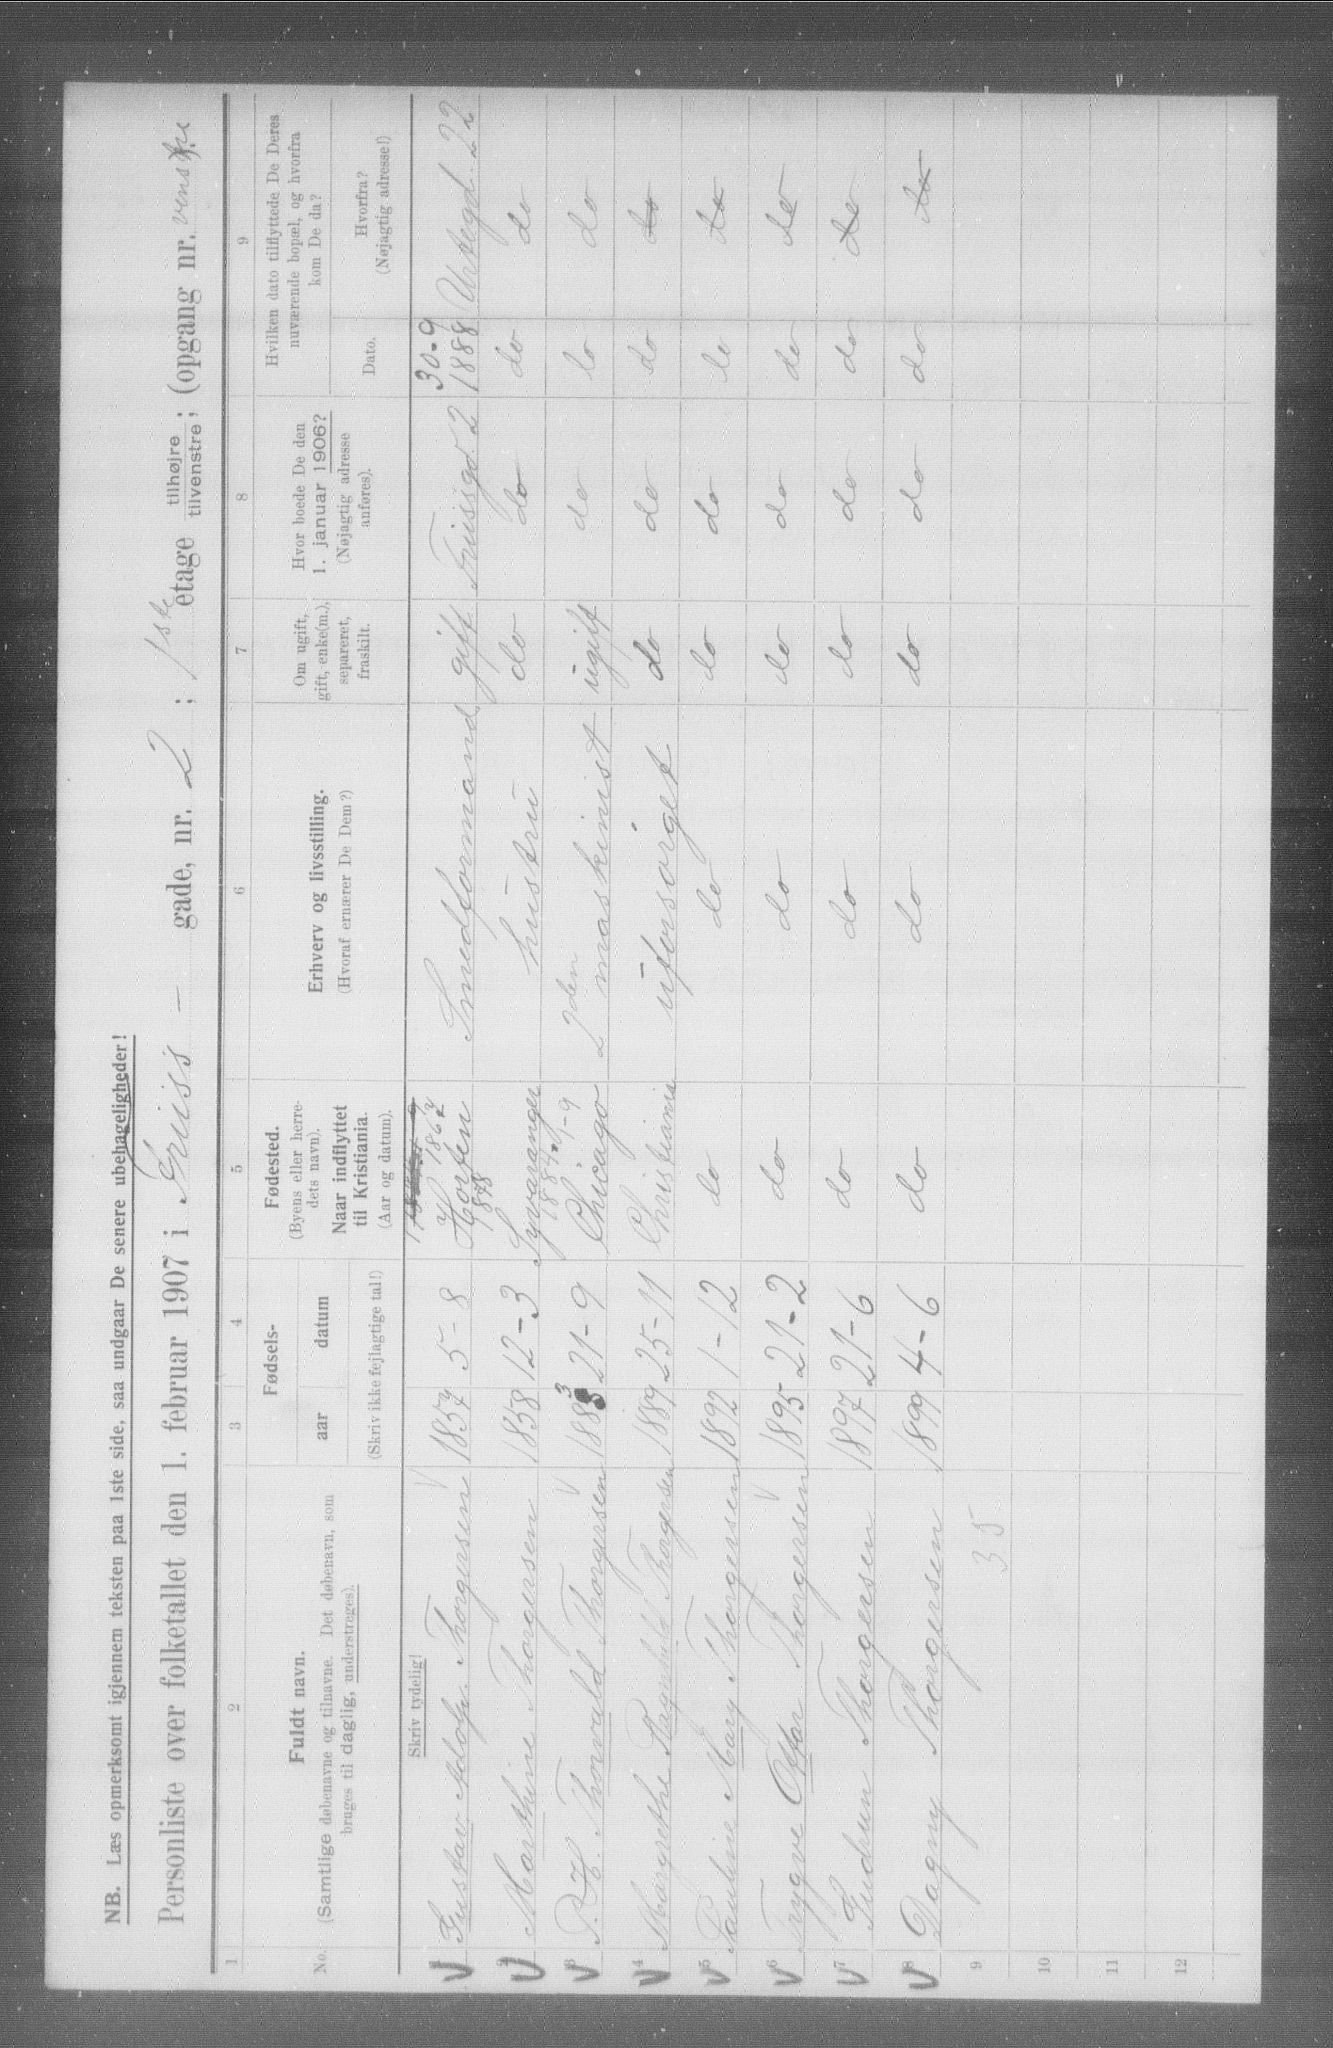 NB. Læs opmerksomt igjennem teksten paa 1ste side, saa undgaar De senere ubehageligheder!
Personliste over folketallet den 1. februar 1907 i Friiss - gade, nr. 2; 1ste etage tilhøjre / tilvenstre; (opgang nr. venstre
1 2 3 4 5 6 7 8 9
No.
Fuldt navn.
(Samtlige døbenavne og tilnavne. Det døbenavn, som
bruges til daglig, understreges).
Fødsels-
aar datum
(Skriv ikke fejlagtige tal!)
Fødested.
(Byens eller herre-
dets navn).
Naar indflyttet
til Kristiania.
(Aar og datum).
Erhverv og livsstilling.
(Hvoraf ernærer De Dem?)
Om ugift,
gift, enke(m.),
separeret,
fraskilt.
Hvor boede De den
1. januar 1906?
(Nøjagtig adresse
anføres).
Hvilken dato tilflyttede De Deres
nuværende bopæl, og hvorfra
kom De da?
Dato.
Hvorfra?
(Nøjagtig adresse!)
Skriv tydelig!
1 Gustav Adolf Thorgersen 1857 5-8 Horten 1878 Smedformand gift Friissgd. 2 30-9 1888 Urtegd. 22
2 Marthine Thorgersen 1858 12-3 Sydvaranger 1884 hustru do do do do
3 R. H. Thorvald Thorgersen 1883 21-9 Chicago 2den maskinist ugift do do do
4 Margrethe Ragnhild Thorgersen 1889 25-11 Christiania uforsørget do do do do
5 Pauline Mary Thorgersen 1892 1-12 do do do do do do
6 Trygve Ottar Thorgersen 1895 21-2 do do do do do do
7 Gudrun Thorgersen 1897 21-6 do do do do do do
8 Dagny Thorgersen 1899 4-6 do do do do do do
9 35
10
11
12